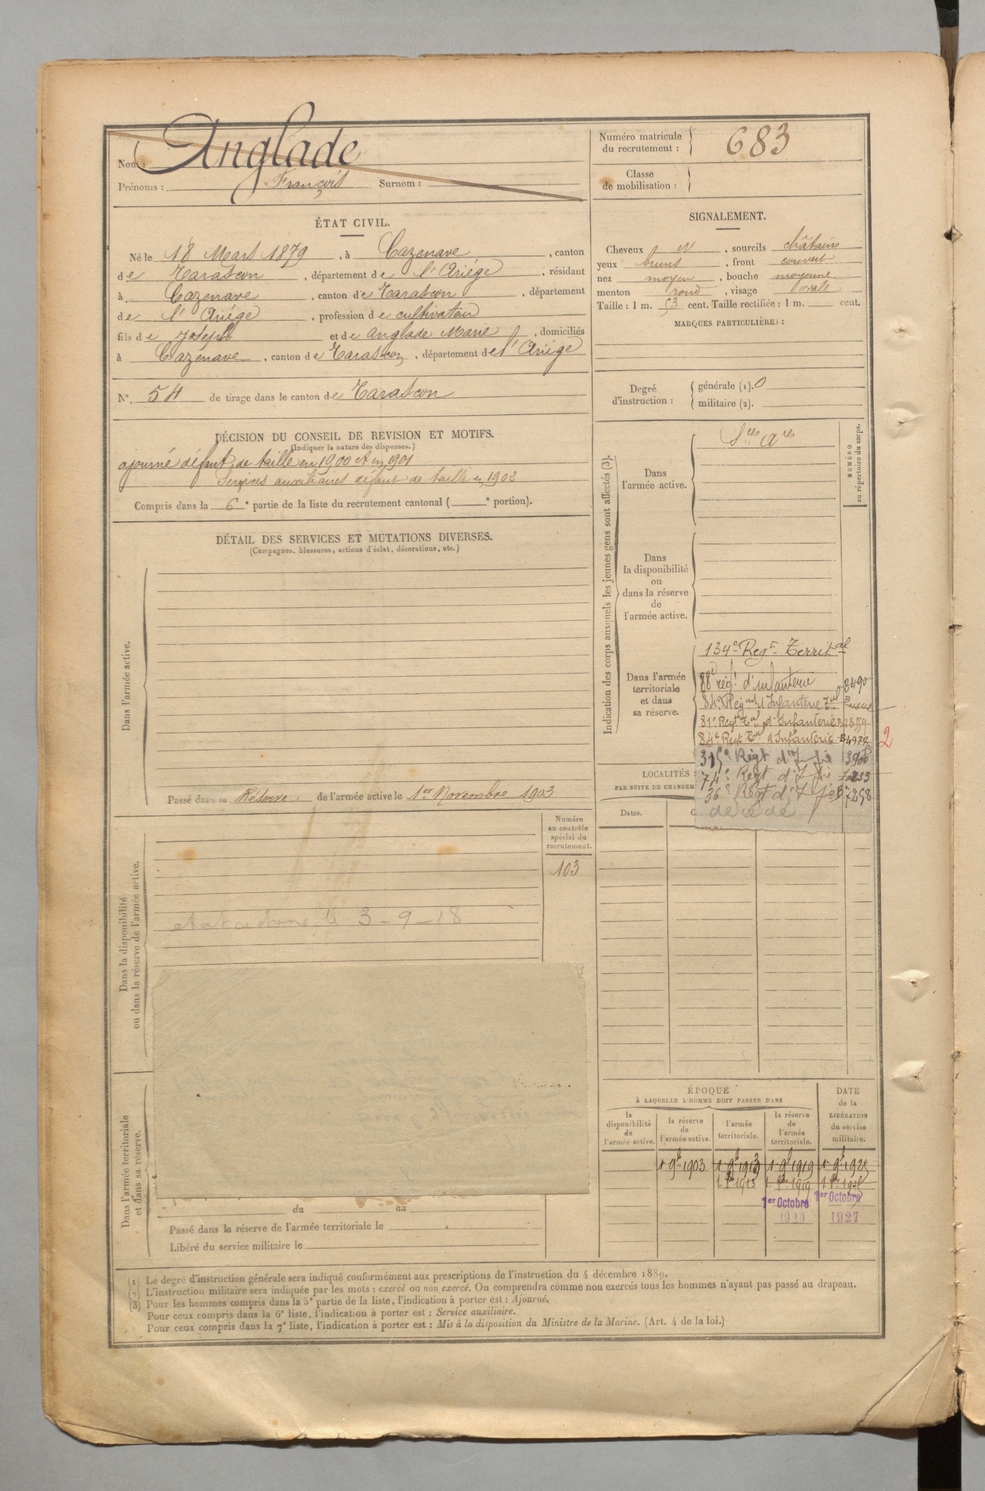 Nom : Anglade
Prénoms : François Surnom :
Numéro matricule du recrutement : 683
Classe de mobilisation :
ÉTAT CIVIL.
Né le 18 Mars 1879, à Cazenave, canton
de Tarascon, département de l'Ariége, résidant
à Cazenave, canton de Tarascon, département
de l'Ariége, profession de cultivateur
fils de Joseph et de Anglade Marie, domiciliés
à Cazenave, canton de Tarascon, département de l'Ariége
N° 54 de tirage dans le canton de Tarascon
DÉCISION DU CONSEIL DE REVISION ET MOTIFS.
(Indiquer la nature des dispenses.)
ajourné défaut de taille en 1900 et en 1901
Services auxiliaires défaut de taille en 1902
Compris dans la 6e partie de la liste du recrutement cantonal ( e portion).
DÉTAIL DES SERVICES ET MUTATIONS DIVERSES.
(Campagnes, blessures, actions d'éclat, décorations, etc.)
Dans l'armée active.
Passé dans la Réserve de l'armée active le 1er Novembre 1903
Dans la disponibilité
ou dans la réserve de l'armée active.
Numéro
au contrôle
spécial du
recrutement.
103
le 3-9-18
Dans l'armée territoriale
et dans sa réserve.
du au
Passé dans la réserve de l'armée territoriale le
Libéré du service militaire le
SIGNALEMENT.
Cheveux N, sourcils châtains
yeux bruns, front couvert
nez moyen, bouche moyenne
menton rond, visage ovale
Taille : 1 m. 53 cent. Taille rectifiée : 1 m. cent.
MARQUES PARTICULIÈRES :
Degré d'instruction :
générale (1). 0
militaire (2).
Indication des corps auxquels les jeunes gens sont affectés (3).
NUMÉRO
au répertoire du corps.
Dans
l'armée active.
Sces Ares
Dans
la disponibilité
ou
dans la réserve
de
l'armée active.
Dans l'armée
territoriale
et dans
sa réserve.
134e Regt Territal
88 régt d'infanterie 8490
84e Regt d'Infanterie
81e Regt d'Infanterie
84e Regt d'Infanterie
2
315e Régt d'Inf
74e Régt d'Inf
36e Régt d'Inf
décédé
LOCALITÉS
PAR SUITE DE CHANGEM
Dates.
ÉPOQUE
À LAQUELLE L'HOMME DOIT PASSER DANS
la
disponibilité
de
l'armée active.
la réserve
de
l'armée active.
l'armée
territoriale.
la réserve
de
l'armée
territoriale.
DATE
de la
LIBÉRATION
du service
militaire.
1 9b 1903 1 9b 1913 1 9b 1919 1 9b 1925
1er Octobre 1er Octobre
1920 1927
(1) Le degré d'instruction générale sera indiqué conformément aux prescriptions de l'instruction du 4 décembre 1889.
(2) L'instruction militaire sera indiquée par les mots : exercé ou non exercé. On comprendra comme non exercés tous les hommes n'ayant pas passé au drapeau.
(3) Pour les hommes compris dans la 5e partie de la liste, l'indication à porter est : Ajourné.
Pour ceux compris dans la 6e liste, l'indication à porter est : Service auxiliaire.
Pour ceux compris dans la 7e liste, l'indication à porter est : Mis à la disposition du Ministre de la Marine. (Art. 4 de la loi.)